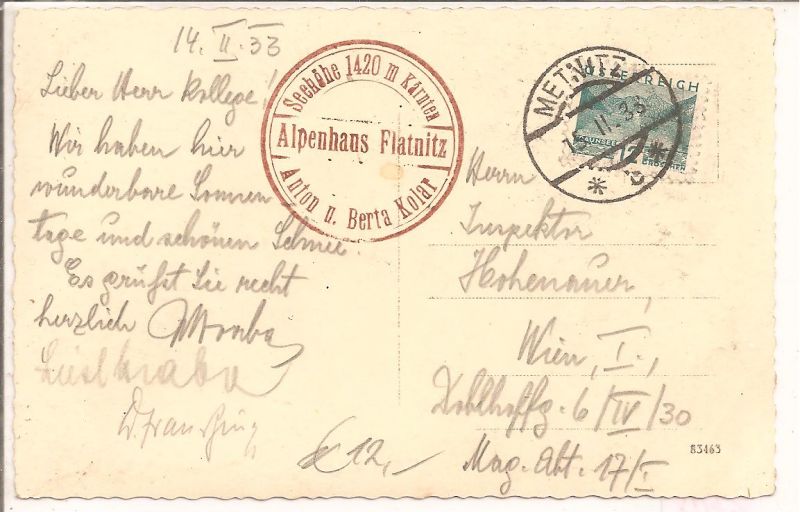 14. II. 33
Lieber Herr Kollege!
Wir haben hier
wunderbare Sonnen
tage und schönen Schnee.
Es grüßt Sie recht
herzlich
Seehöhe 1420 m Kärnten
Alpenhaus Flatnitz
Anton u. Berta Kolar
METNITZ
II. 33
ÖSTERREICH
12
GROSCHEN
Herrn
Inspektor
Hohenauer,
Wien, I.,
6/IV/30
Mag. Abt. 17/I
€ 12,-
83463